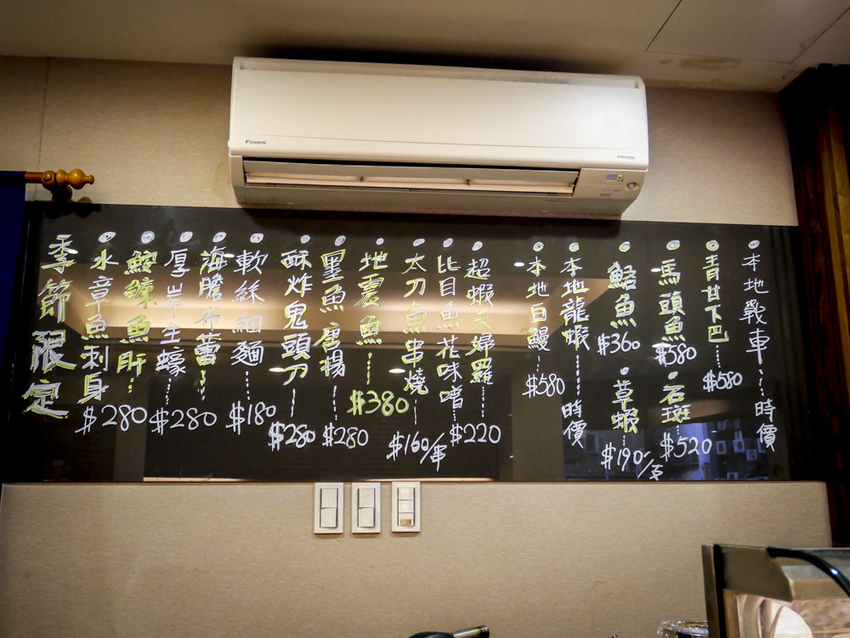 DAIKIN
季節限定
水章魚刺身 $280
鮟鱇魚肝
厚岸生蠔 $280
海膽布蕾
軟絲細麵 $180
酥炸鬼頭刀 $280
墨魚唐揚 $280
地震魚 $380
太刀魚串燒 $160/串
比目魚花味噌
超蝦天婦羅 $220
本地白鰻 $580
本地龍蝦 時價
魚 $360
草蝦 $190/支
馬頭魚 $580
石斑 $520
青甘下巴 $580
本地戰車 時價